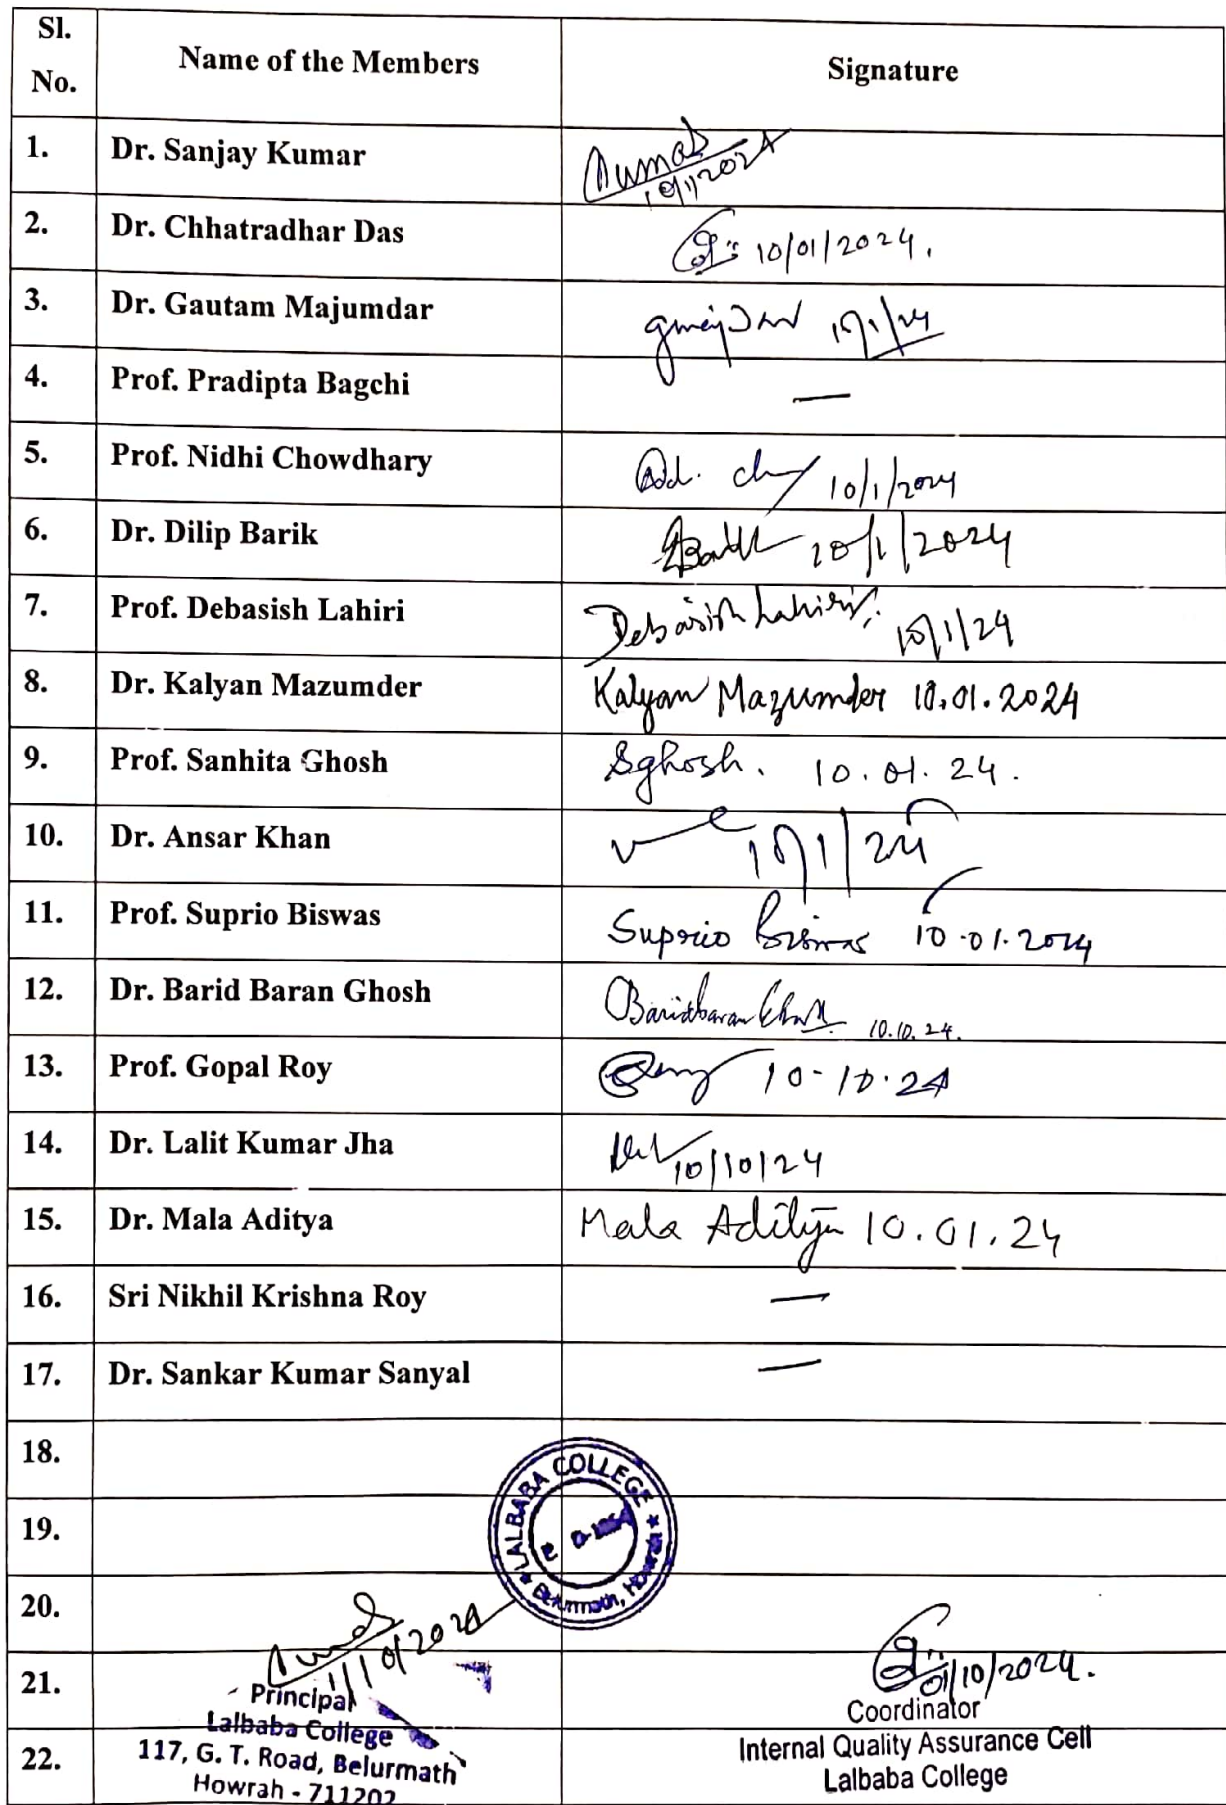 Sl. No. Name of the Members Signature
1. Dr. Sanjay Kumar 10/1/2024
2. Dr. Chhatradhar Das 10/01/2024.
3. Dr. Gautam Majumdar 10/1/24
4. Prof. Pradipta Bagchi —
5. Prof. Nidhi Chowdhary 10/1/2024
6. Dr. Dilip Barik 10/1/2024
7. Prof. Debasish Lahiri Debasish Lahiri 10/1/24
8. Dr. Kalyan Mazumder Kalyan Mazumder 10.01.2024
9. Prof. Sanhita Ghosh SGhosh. 10.01.24.
10. Dr. Ansar Khan 10/1/24
11. Prof. Suprio Biswas Suprio Biswas 10.01.2024
12. Dr. Barid Baran Ghosh Baridbaran Ghosh 10.10.24.
13. Prof. Gopal Roy 10-10.24
14. Dr. Lalit Kumar Jha 10/10/24
15. Dr. Mala Aditya Mala Aditya 10.01.24
16. Sri Nikhil Krishna Roy —
17. Dr. Sankar Kumar Sanyal —
18.
LALBABA COLLEGE
19.
Belurmath, Howrah
20.
1/10/2024
01/10/2024.
21.
Principal
Lalbaba College
117, G. T. Road, Belurmath
Howrah - 711202
Coordinator
Internal Quality Assurance Cell
Lalbaba College
22.